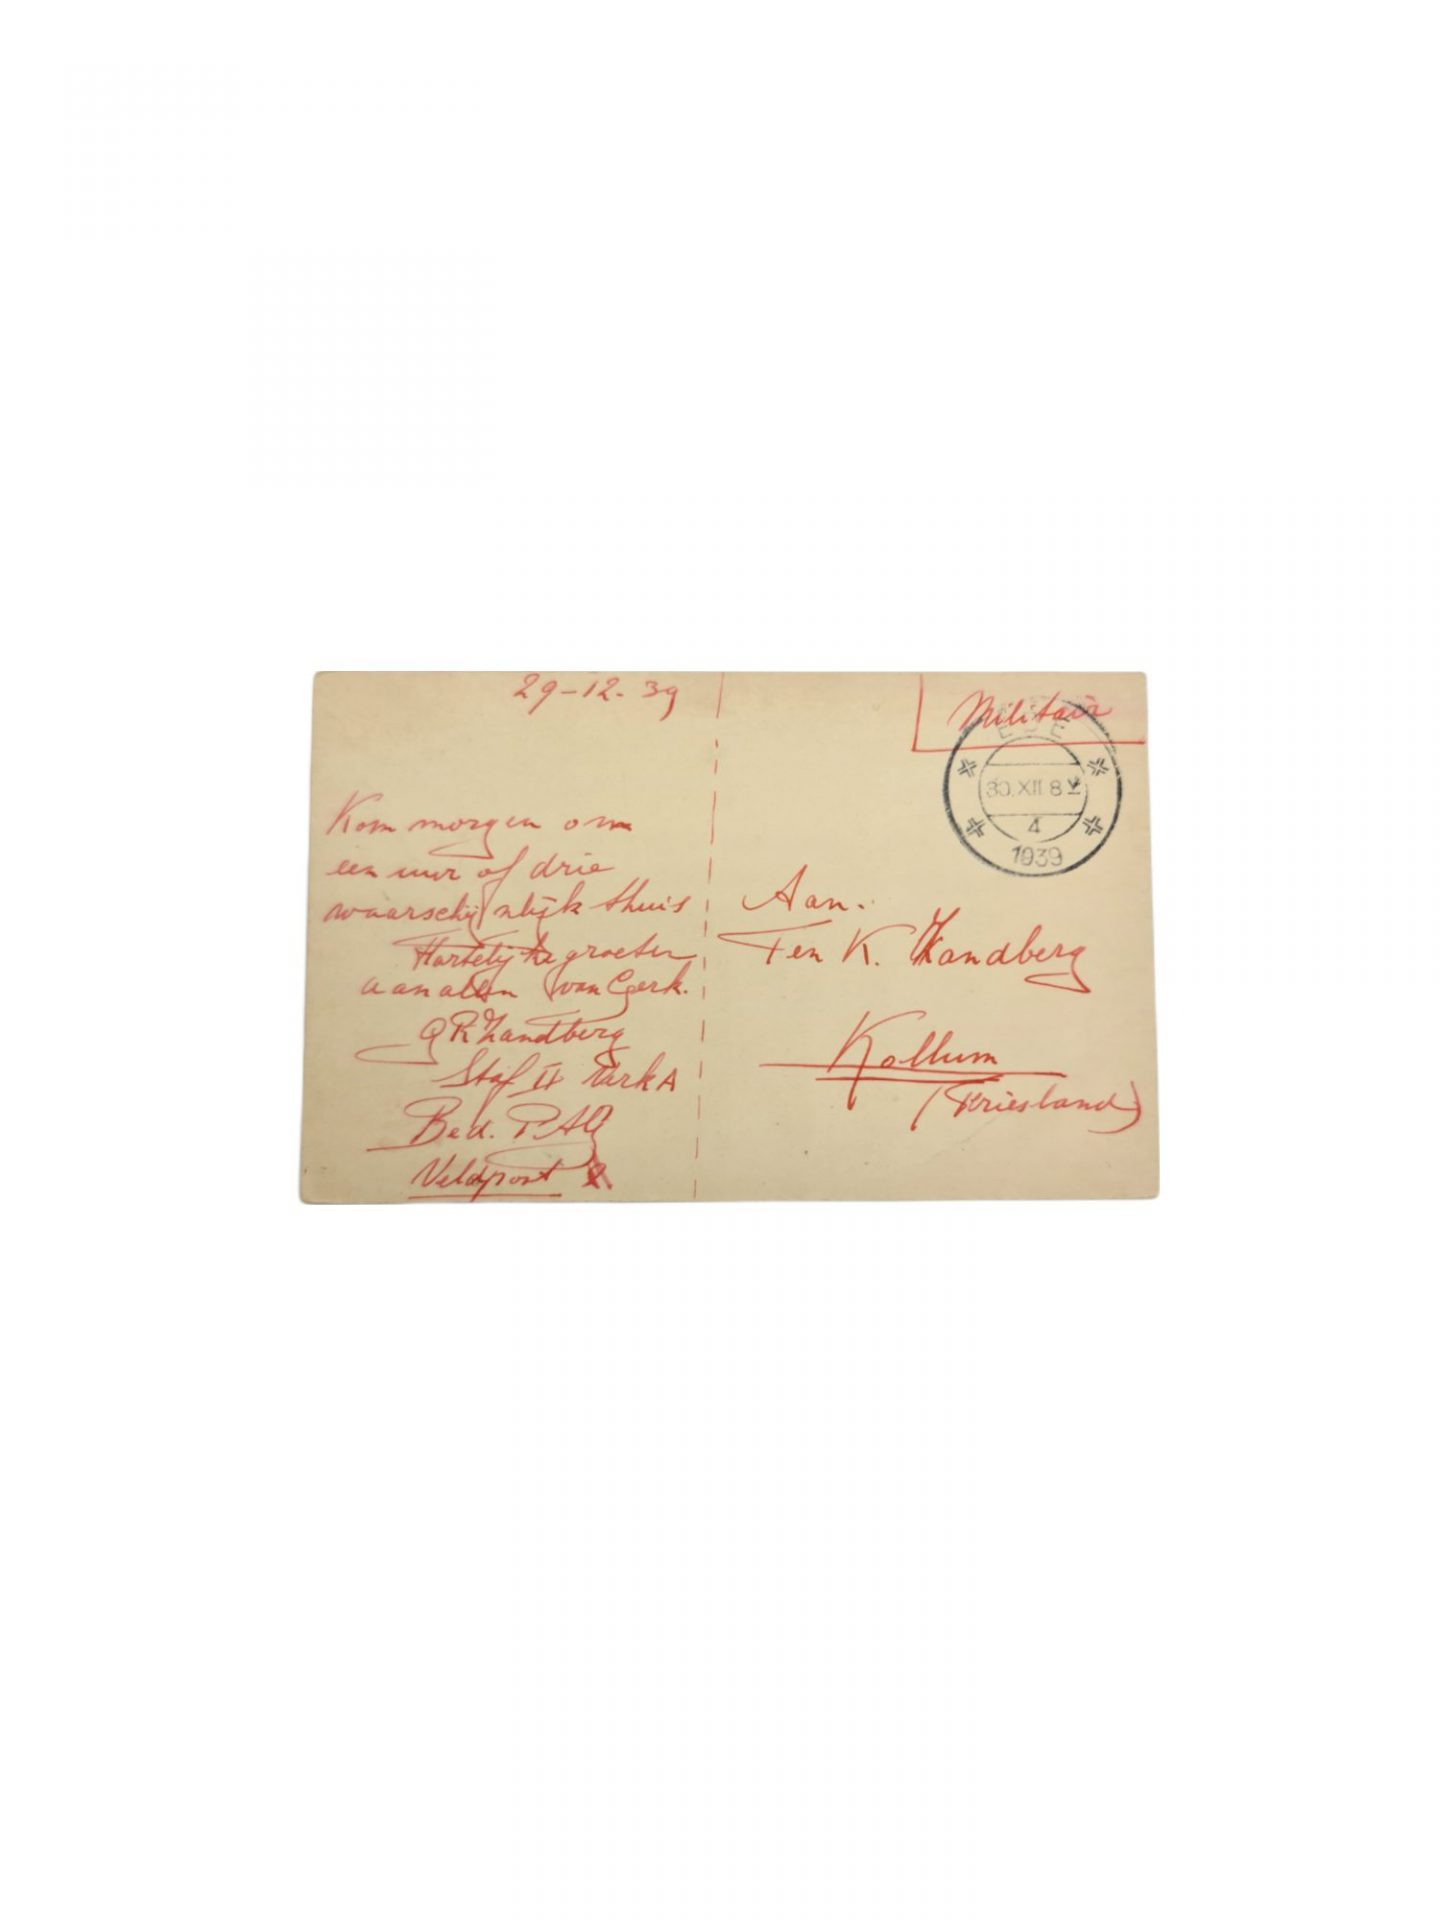 29-12-39
Kom morgen om
een uur of drie
waarschijnlijk thuis
Hartelijke groeten
aan allen van Gerk.
G R Zandberg
Staf II
Bed. PAG
Veldpost
Militair
EDE
30.XII 8 V
4
1939
Aan.
Fen K. Zandberg
Kollum
(Friesland)